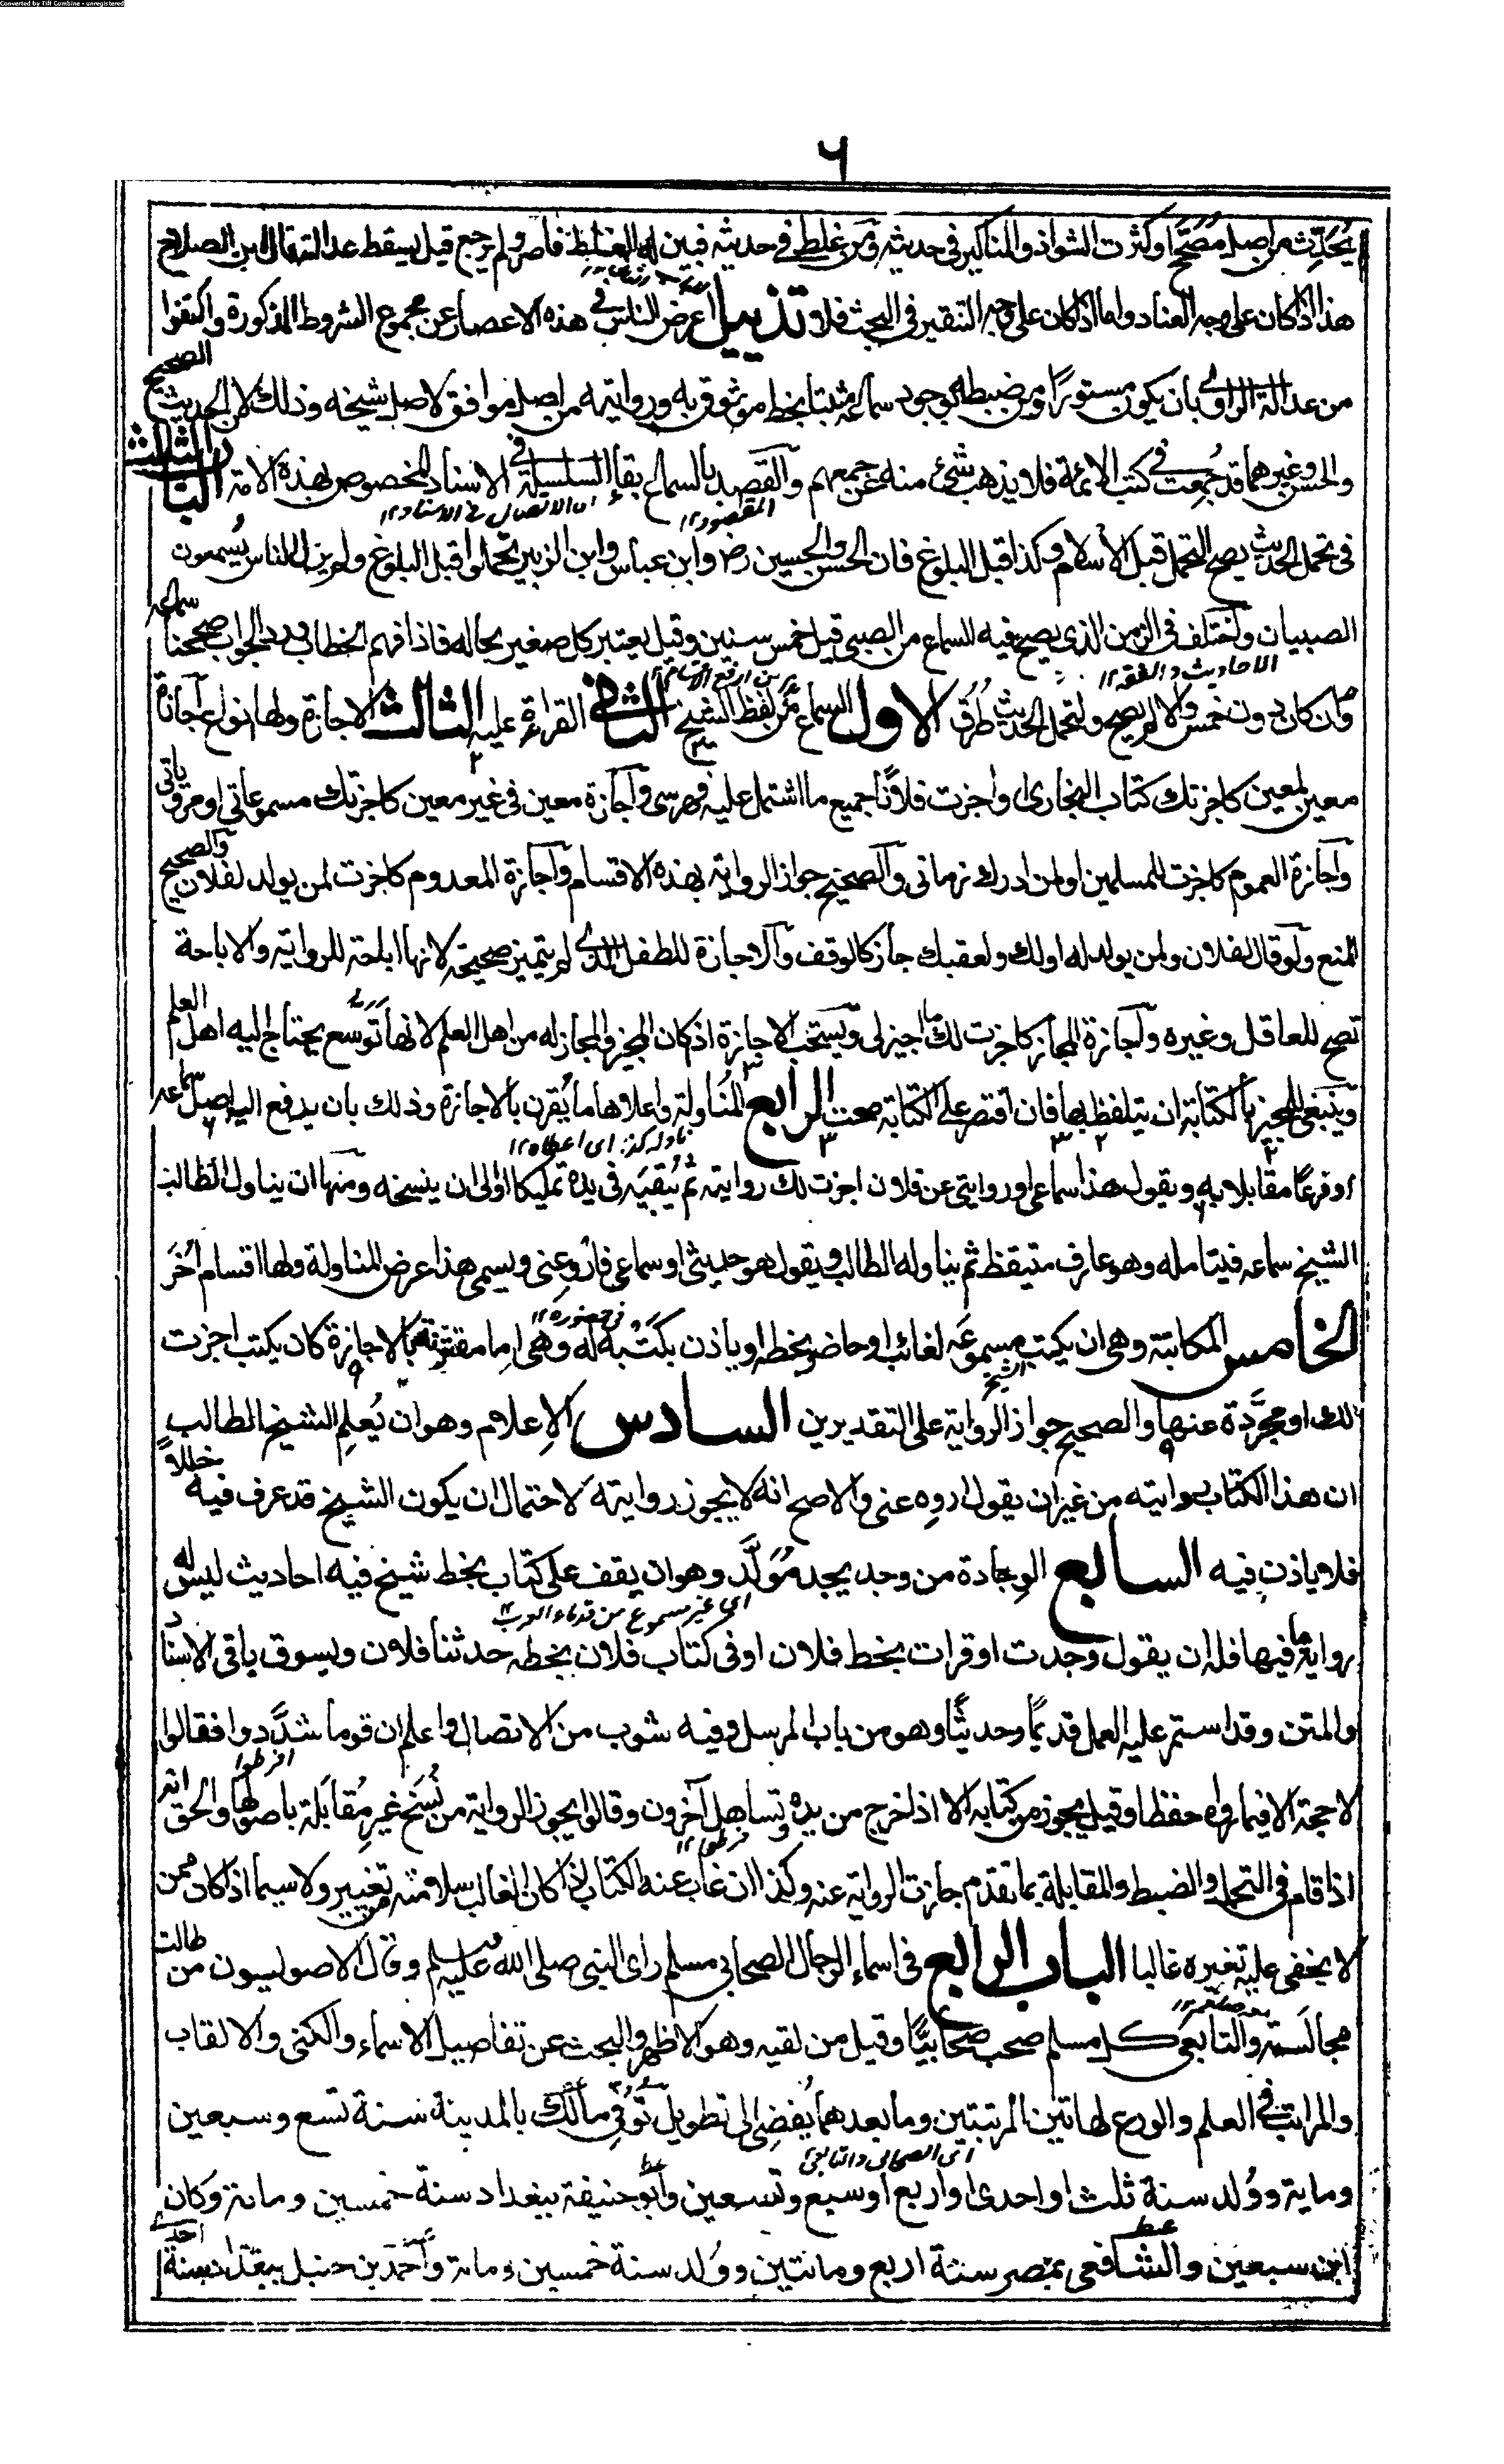 Converted by Tiff Combine - unregistered
٦
يُحَدِّث من اصل مصحح او كثرت الشواذ والمناكير فى حديثه ومن غلط فى حديثه فبين له الغلط فاصر ولم يرجع قيل يسقط عدالته قال ابن الصلاح
هذا اذا كان على وجه العناد واما اذا كان على وجه التنقير فى البحث فلا تذييل اعرض الناس فى هذه الاعصار عن مجموع الشروط المذكورة واكتفوا
من عدالة الراوى بان يكون مستورًا ومن ضبطه بوجود سماعه مثبتا بخط موثوق به وروايته من اصل موافق لاصل شيخه وذلك لان الحديث الصحيح
والحسن وغيرهما قد جُمِعت فى كتب الائمة فلا يذهب شئ منه عن جميعهم والقصد بالسماع بقاء السلسلة فى الاسناد المخصوص بهذه الامة الباب الثالث
المقصود١٢ اى الاتصال فى الاسناد١٢
فى تحمل الحديث يصح التحمل قبل الاسلام وكذا قبل البلوغ فان الحسن والحسين رض وابن عباس وابن الزبير تحملوا قبل البلوغ ولم يزل الناس يُسمعون
الصبيان واختلف فى الزمن الذى يصح فيه السماع من الصبى قيل خمس سنين وقيل يعتبر كل صغير بحاله فاذا فهم الخطاب ورد الجواب صححنا سماعه
الاحاديث والفقه١٢
وان كان دون خمس والا لم يصح ولتحمل الحديث طُرُق الاول السماع من لفظ الشيخ الثانى القراءة عليه الثالث الاجازة ولها انواع اجازة
معين لمعين كاجزتك كتاب البخارى او اجزت فلانًا جميع ما اشتمل عليه فهرسى واجازة معين فى غير معين كاجزتك مسموعاتى او مروياتى
واجازة العموم كاجزت للمسلمين او لمن ادرك زمانى والصحيح جواز الرواية بهذه الاقسام واجازة المعدوم كاجزت لمن يولد لفلان والصحيح
المنع ولو قال لفلان ولمن يولد له او لك ولعقبك جاز كالوقف والاجازة للطفل الذى لم يتميز صحيحة لانها اباحة للرواية والاباحة
تصح للعاقل وغيره واجازة المجاز كاجزت لك ما اجيز لى ويستحب الاجازة اذا كان المجيز والمجاز له من اهل العلم لانها توسع يحتاج اليه اهل العلم
وينبغى للمجيز بالكتابة ان يتلفظ بها فان اقتصر على الكتابة صحت الرابع المناولة واعلاها ما يُقرن بالاجازة وذلك بان يدفع اليه اصل سماعه
ناوله كذا: اى اعطاه١٢
او فرعًا مقابلا به ويقول هذا سماعى او روايتى عن فلان اجزت لك روايته ثم يُبقيه فى يده تمليكا او الى ان ينسخه ومنها ان يناول الطالب
الشيخ سماعه فيتامله وهو عارف متيقظ ثم يناوله الطالب ويقول هو حديثى او سماعى فاروِ عنى ويسمى هذا عرض المناولة ولها اقسام اُخَر
الخامس المكاتبة وهى ان يكتب مسموعه لغائب او حاضر بخطه او ياذن بكتبه له وهى اما مقترنة بالاجازة كان يكتب اجزت
الشيخ
لك او مجرَّدة عنها والصحيح جواز الرواية على التقديرين السادس الاِعلام وهو ان يُعلِم الشيخ الطالب
ان هذا الكتاب روايته من غير ان يقول اروِه عنى والاصح انه لا يجوز روايته لاحتمال ان يكون الشيخ قد عرف فيه خللاً
فلا ياذن فيه السابع الوجادة من وجد يجد مُوَلَّد وهو ان يقف على كتاب بخط شيخ فيه احاديث ليس له
اى غير مسموع من قدماء العرب١٢
رواية ما فيها فله ان يقول وجدت او قرات بخط فلان او فى كتاب فلان بخطه حدثنا فلان ويسوق باقى الاسناد
والمتن وقد استمر عليه العمل قديمًا وحديثًا وهو من باب المرسل وفيه شوب من الاتصال واعلم ان قوما شدَّدوا فقالوا
افرطوا
لا حجة الا فيما رواه حفظا وقيل يجوز من كتابه الا اذا خرج من يده وتساهل آخرون وقالوا يجوز الرواية من نُسَخ غيرِ مُقابَلة باصولها والحق انه
فرطوا١٢
اذا قام فى التحمل والضبط والمقابلة بما تقدم جازت الرواية عنه وكذا ان غاب عنه الكتاب اذا كان الغالب سلامته من تغيير ولا سيما اذا كان ممن
لا يخفى عليه تغيره غالبا الباب الرابع فى اسماء الرجال الصحابى مسلم راى النبى صلى الله عليه وسلم وقال الاصوليون من طالت
مجالسته والتابعى كل مسلم صحب صحابيًّا وقيل من لقيه وهو الاظهر والبحث عن تفاصيل الاسماء والكنى والالقاب
والمراتب فى العلم والورع لهاتين المرتبتين وما بعدهما يُفضِى الى تطويل تُوفى مالك بالمدينة سنة تسع وسبعين
اى الصحابى والتابعى
وماية ووُلد سنة ثلث او احدى او اربع او سبع وتسعين وابو حنيفة ببغداد سنة خمسين ومائة وكان
ابن سبعين والشافعى بمصر سنة اربع ومائتين ووُلد سنة خمسين ومائة واحمد بن حنبل ببغداد سنة احدى